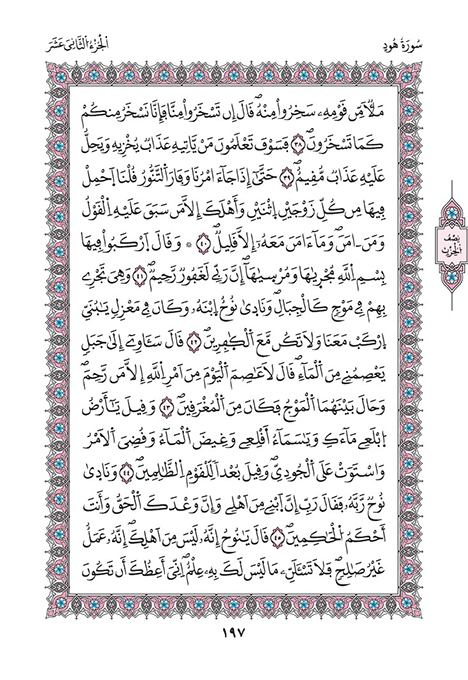 سُورَةُ هُودٍ
اَلْجُزْءُ الثَّانِيَ عَشَرَ
مَلَأٌ مِّن قَوْمِهِۦ سَخِرُواْ مِنْهُۖ قَالَ إِن تَسْخَرُواْ مِنَّا فَإِنَّا نَسْخَرُ مِنكُمْ
كَمَا تَسْخَرُونَۖ ٣٨ فَسَوْفَ تَعْلَمُونَ مَنْ يَّاتِيهِ عَذَابٌ يُخْزِيهِ وَيَحِلُّ
عَلَيْهِ عَذَابٌ مُّقِيمٌۖ ٣٩ حَتَّىٰٓ إِذَا جَآءَ امْرُنَا وَفَارَ اَلتَّنُّورُ قُلْنَا اَحْمِلْ
فِيهَا مِن كُلِّ زَوْجَيْنِ اِثْنَيْنِ وَأَهْلَكَ إِلَّا مَن سَبَقَ عَلَيْهِ اِلْقَوْلُ
وَمَنَ اٰمَنَۖ وَمَآ ءَامَنَ مَعَهُۥٓ إِلَّا قَلِيلٌۖ ٤٠ ۞ وَقَالَ اَرْكَبُواْ فِيهَا
بِسْمِ اِللَّهِ مُجْرٜىٰهَا وَمُرْسَىٰهَآۖ إِنَّ رَبِّے لَغَفُورٌ رَّحِيمٌۖ ٤١ وَهِيَ تَجْرِے
بِهِمْ فِے مَوْجٍ كَالْجِبَالِۖ وَنَادَىٰ نُوحٌ اِبْنَهُۥ وَكَانَ فِے مَعْزِلٍ يَٰبُنَيِّ
اِرْكَب مَّعَنَا وَلَا تَكُن مَّعَ اَلْكَٰفِرِينَۖ ٤٢ قَالَ سَـَٔاوِےٓ إِلَىٰ جَبَلٍ
يَعْصِمُنِے مِنَ اَلْمَآءِۖ قَالَ لَا عَاصِمَ اَلْيَوْمَ مِنَ اَمْرِ اِللَّهِ إِلَّا مَن رَّحِمَۖ
وَحَالَ بَيْنَهُمَا اَلْمَوْجُ فَكَانَ مِنَ اَلْمُغْرَقِينَۖ ٤٣ وَقِيلَ يَٰٓأَرْضُ
اُبْلَعِے مَآءَكِ وَيَٰسَمَآءُ اَقْلِعِےۖ وَغِيضَ اَلْمَآءُ وَقُضِيَ اَلَامْرُ
وَاسْتَوَتْ عَلَى اَلْجُودِيِّۖ وَقِيلَ بُعْداً لِّلْقَوْمِ اِلظَّٰلِمِينَۖ ٤٤ وَنَادَىٰ
نُوحٌ رَّبَّهُۥ فَقَالَ رَبِّ إِنَّ اَبْنِے مِنَ اَهْلِے وَإِنَّ وَعْدَكَ اَلْحَقُّ وَأَنتَ
أَحْكَمُ اُلْحَٰكِمِينَۖ ٤٥ قَالَ يَٰنُوحُ إِنَّهُۥ لَيْسَ مِنَ اَهْلِكَۖ إِنَّهُۥ عَمَلٌ
غَيْرُ صَٰلِحٍۖ فَلَا تَسْـَٔلَنِّۦ مَا لَيْسَ لَكَ بِهِۦ عِلْمٌۖ اِنِّيَ أَعِظُكَ أَن تَكُونَ
نِصْفُ
اَلْحِزْبِ
١٩٧